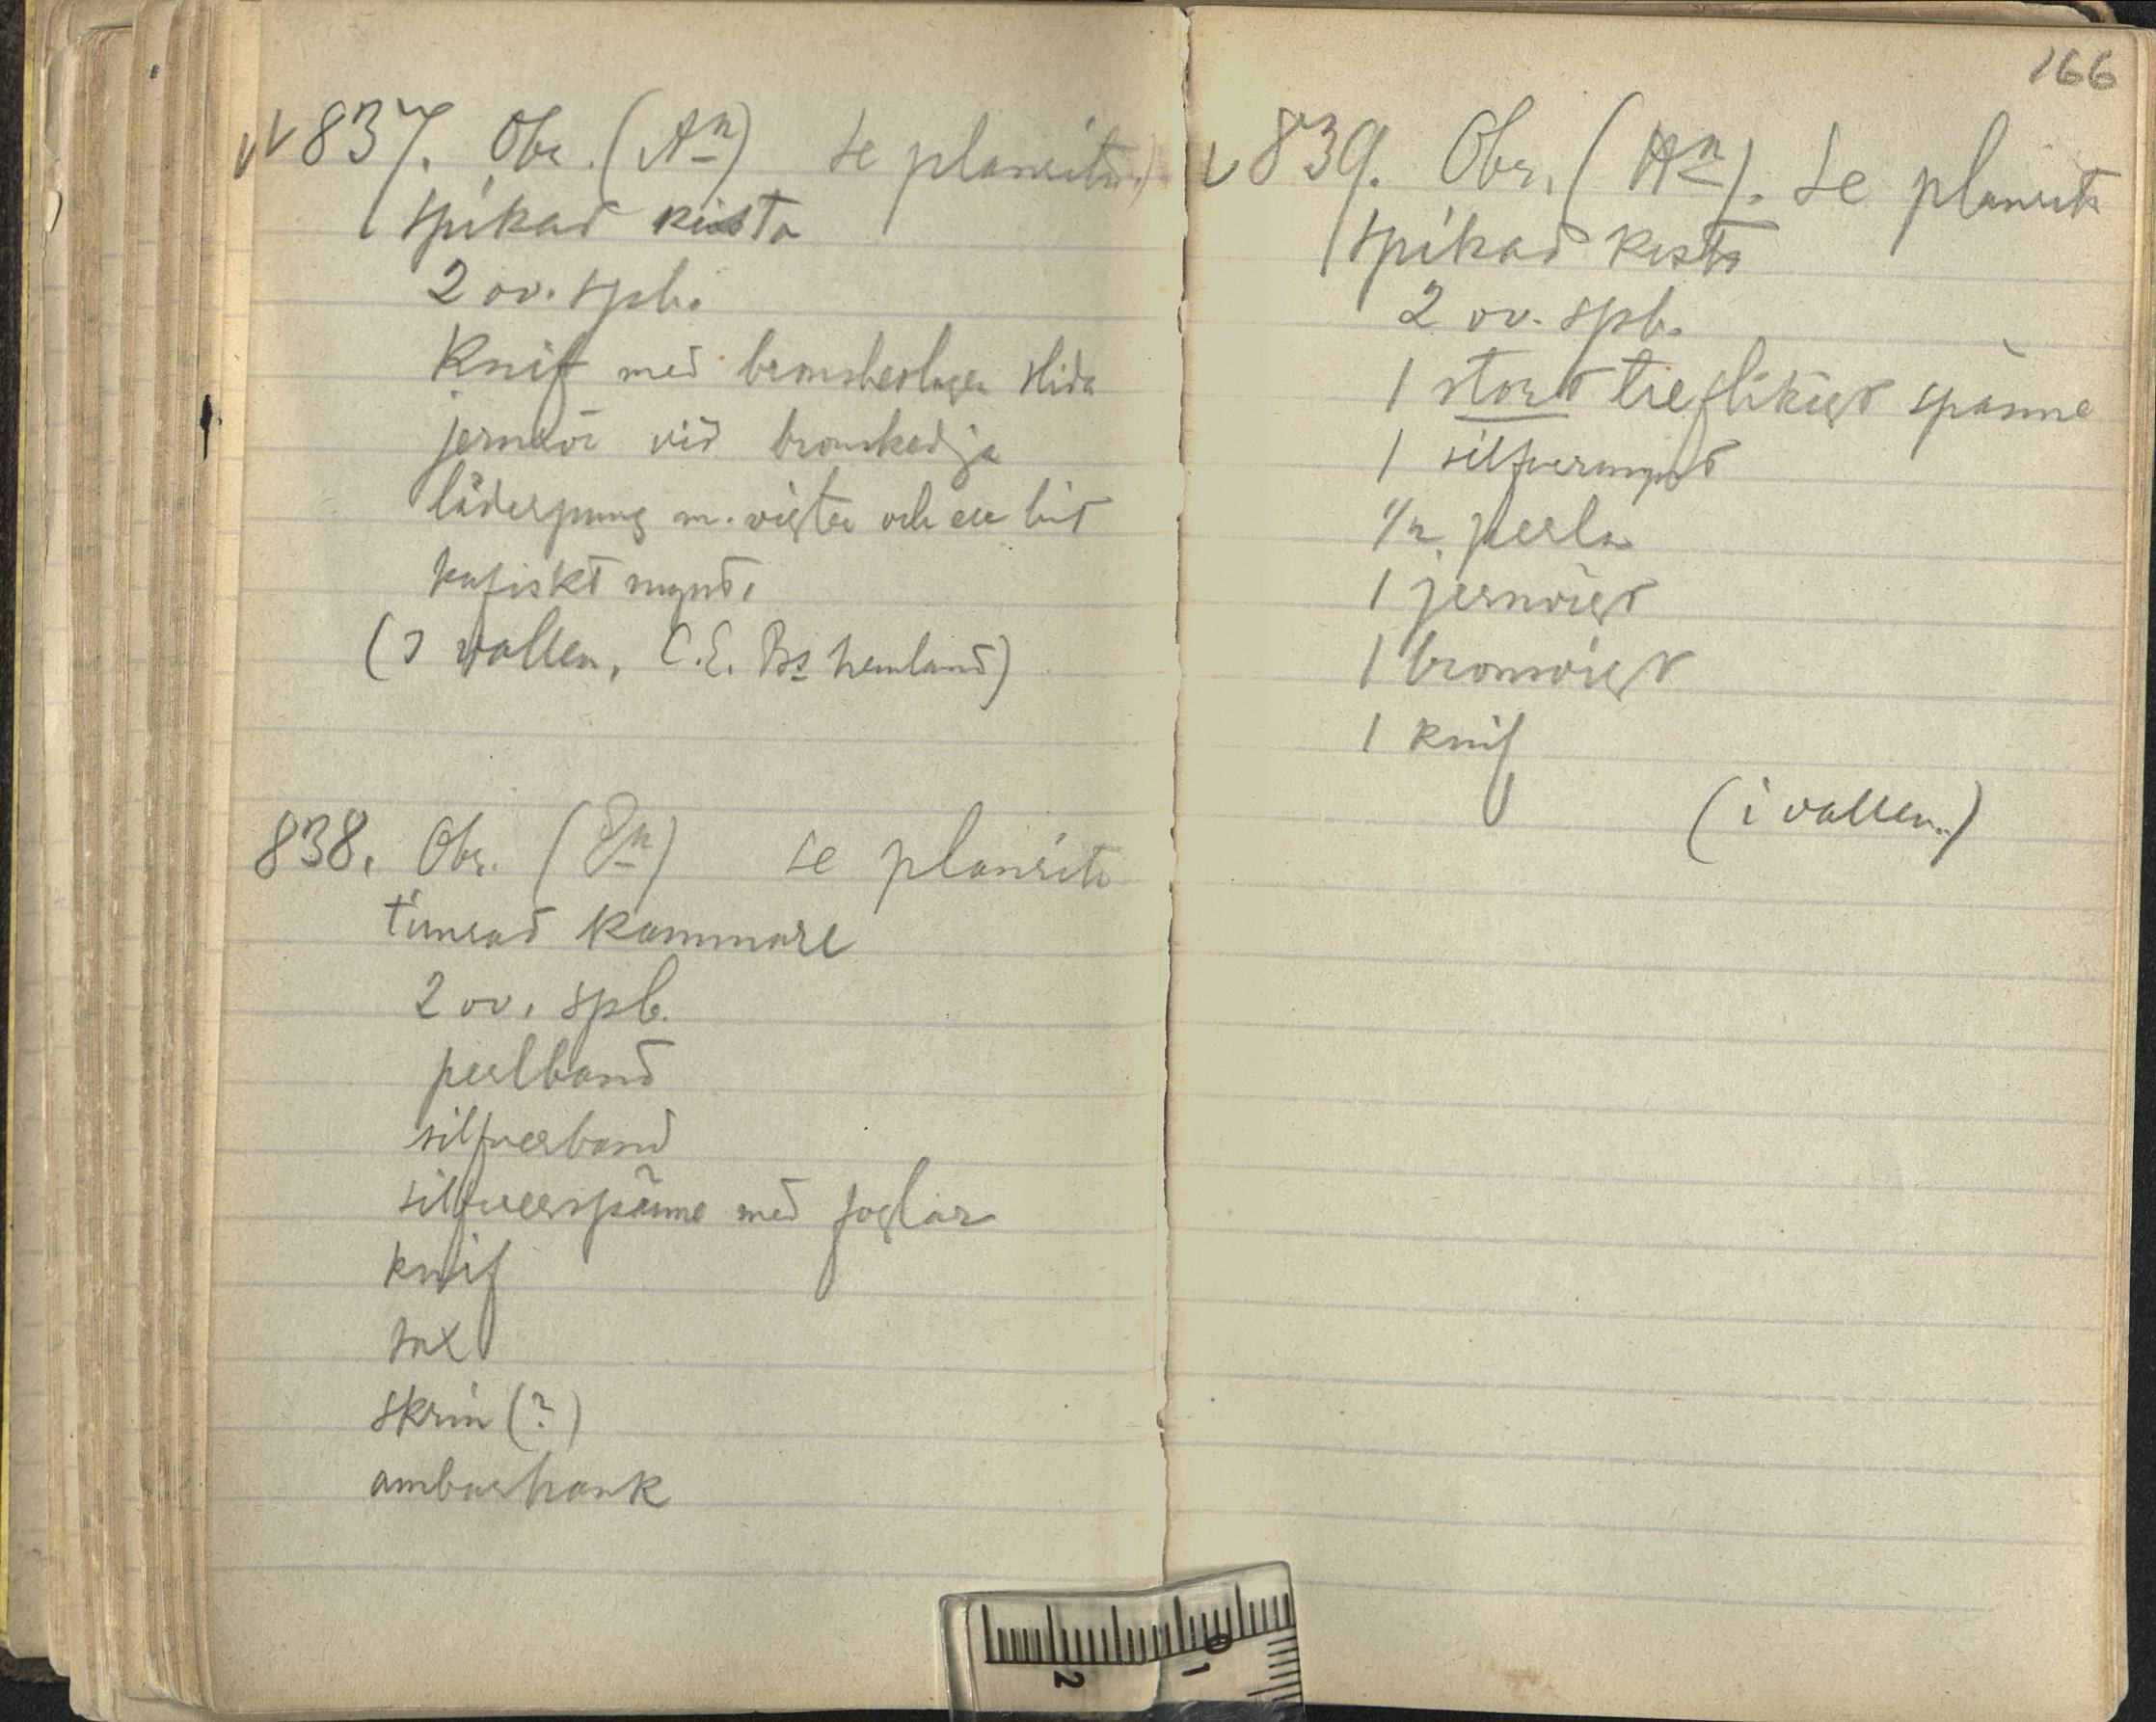 837. Obr. (An) se planrita
spikad kista
2 ov. spb.
Knif med bronsbeslagen slida
jernkär vid bronskedja
läderpung m. vigter och en bit
kufiskt mynt.
(I vallen, C.E. Bs hemland)
838. Obr. (En) se planrita
timrad kammare
2 ov. spb.
perlband
silfverband
silfverspänne med foglar
knif
sax
skrin (?)
ambarhank
166
839. Obr. (An). Se planrita
spikad kista
2 ov. spb.
1 stort treflikigt spänne
1 silfvermynt
1/2 perla
1 jernvigt
1 bronsvigt
1 knif
(i vallen.)
2
0
1